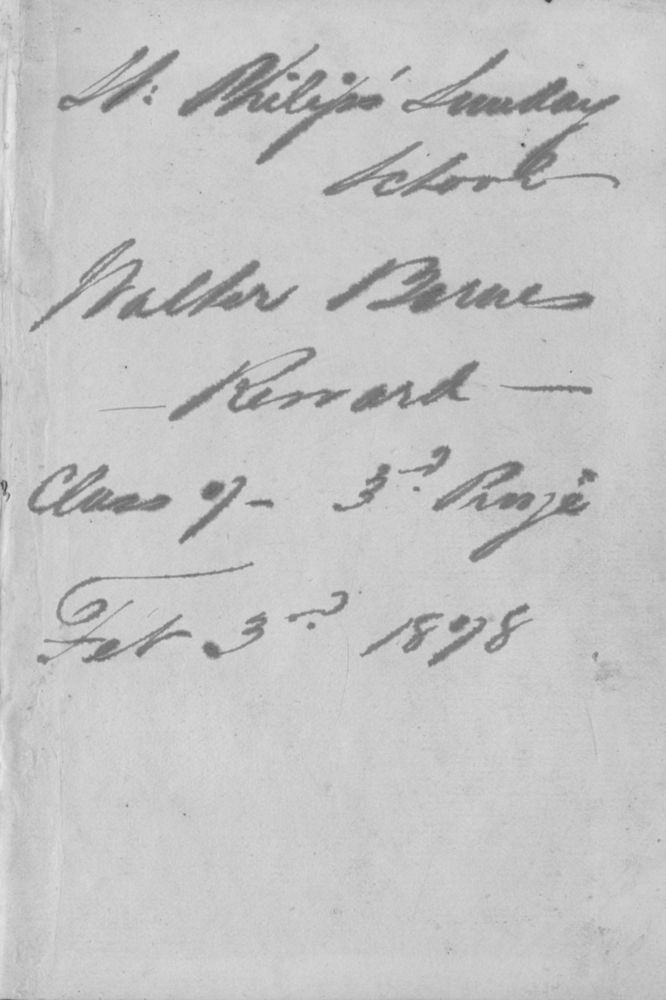 St: Philips' Sunday
School
Walter Barnes
— Reward —
Class 7 - 3rd Prize
Feb 3rd 1878